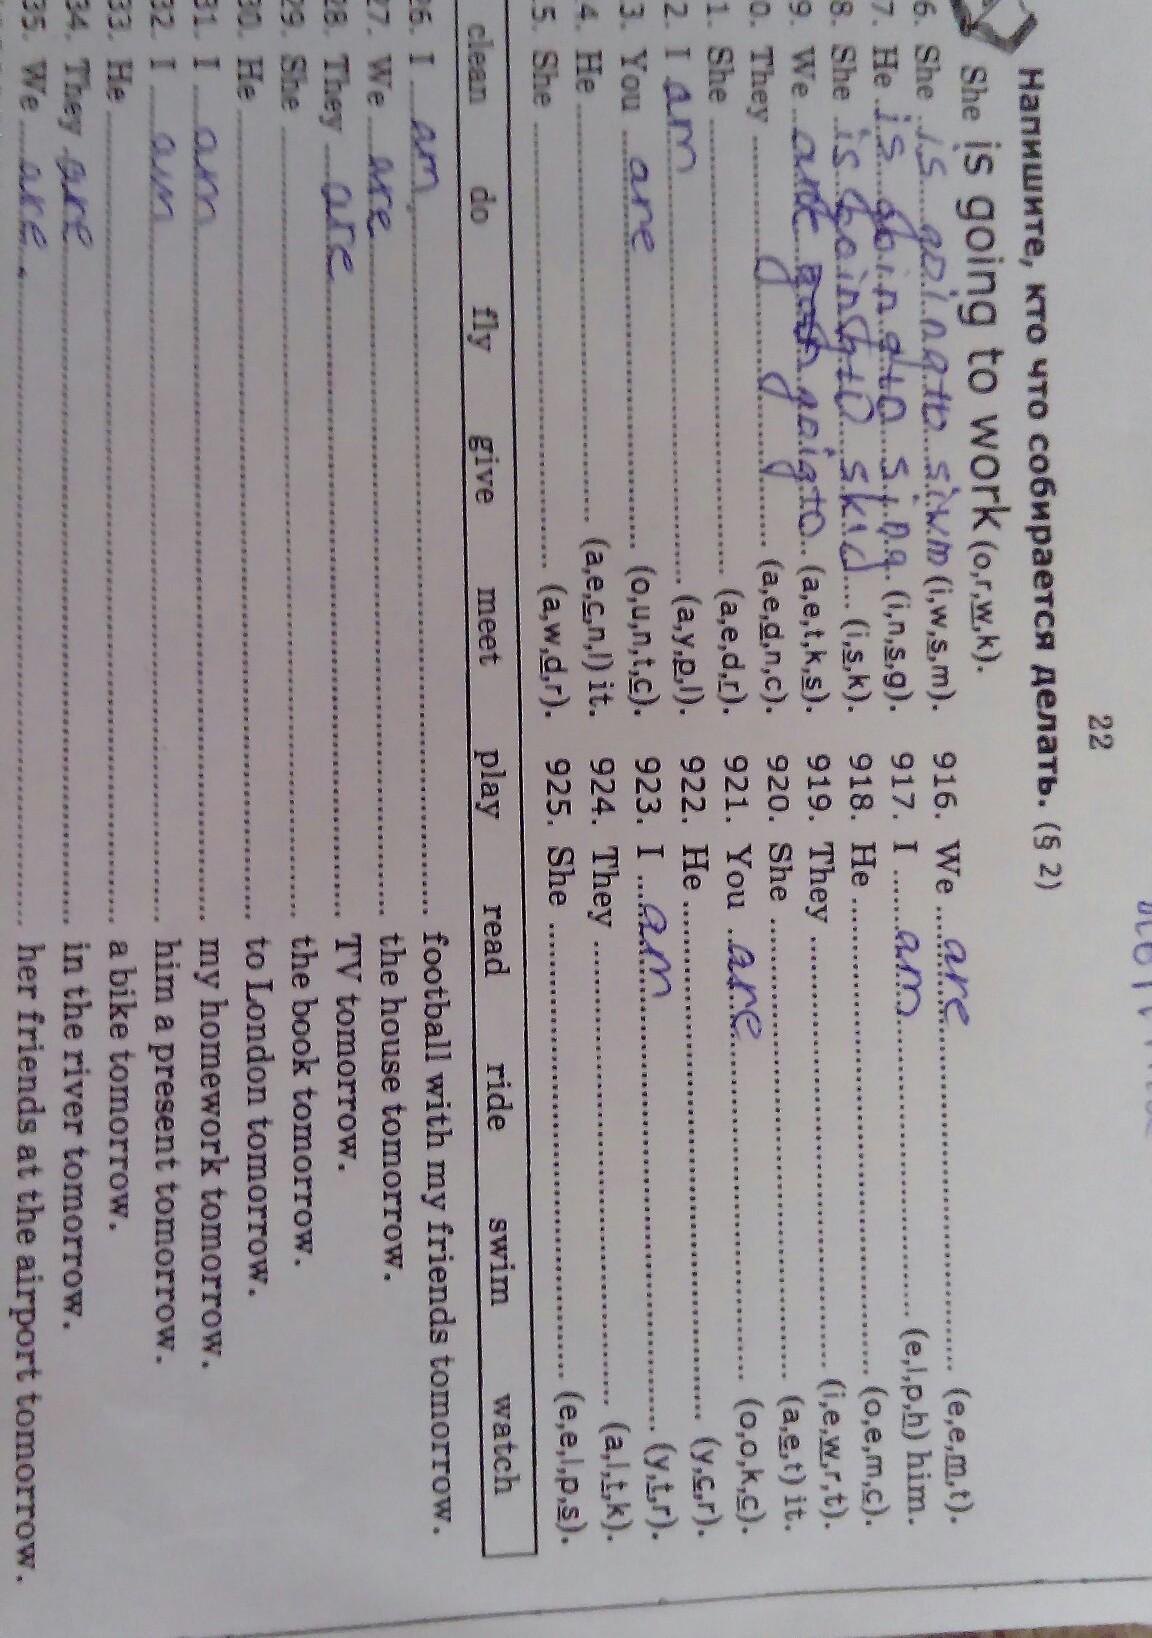 22
Напишите, кто что собирается делать. (§ 2)
She is going to work (o,r,w,k).
6. She is going to siwm (i,w,s,m).
7. He is going to sing (i,n,s,g).
8. She is going to (i,s,k).
9. We are goig to (a,e,t,k,s).
0. They (a,e,d,n,c).
1. She (a,e,d,r).
2. I am (a,y,p,l).
3. You are (o,u,n,t,c).
4. He (a,e,c,n,l) it.
5. She (a,w,d,r).
916. We are (e,e,m,t).
917. I am (e,l,p,h) him.
918. He (o,e,m,c).
919. They (i,e,w,r,t).
920. She (a,e,t) it.
921. You are (o,o,k,c).
922. He (y,c,r).
923. I am (y,t,r).
924. They (a,l,t,k).
925. She (e,e,l,p,s).
clean do fly give meet play read ride swim watch
26. I am football with my friends tomorrow.
27. We are the house tomorrow.
28. They are TV tomorrow.
29. She the book tomorrow.
30. He to London tomorrow.
31. I am my homework tomorrow.
32. I am him a present tomorrow.
33. He a bike tomorrow.
34. They are in the river tomorrow.
35. We are her friends at the airport tomorrow.